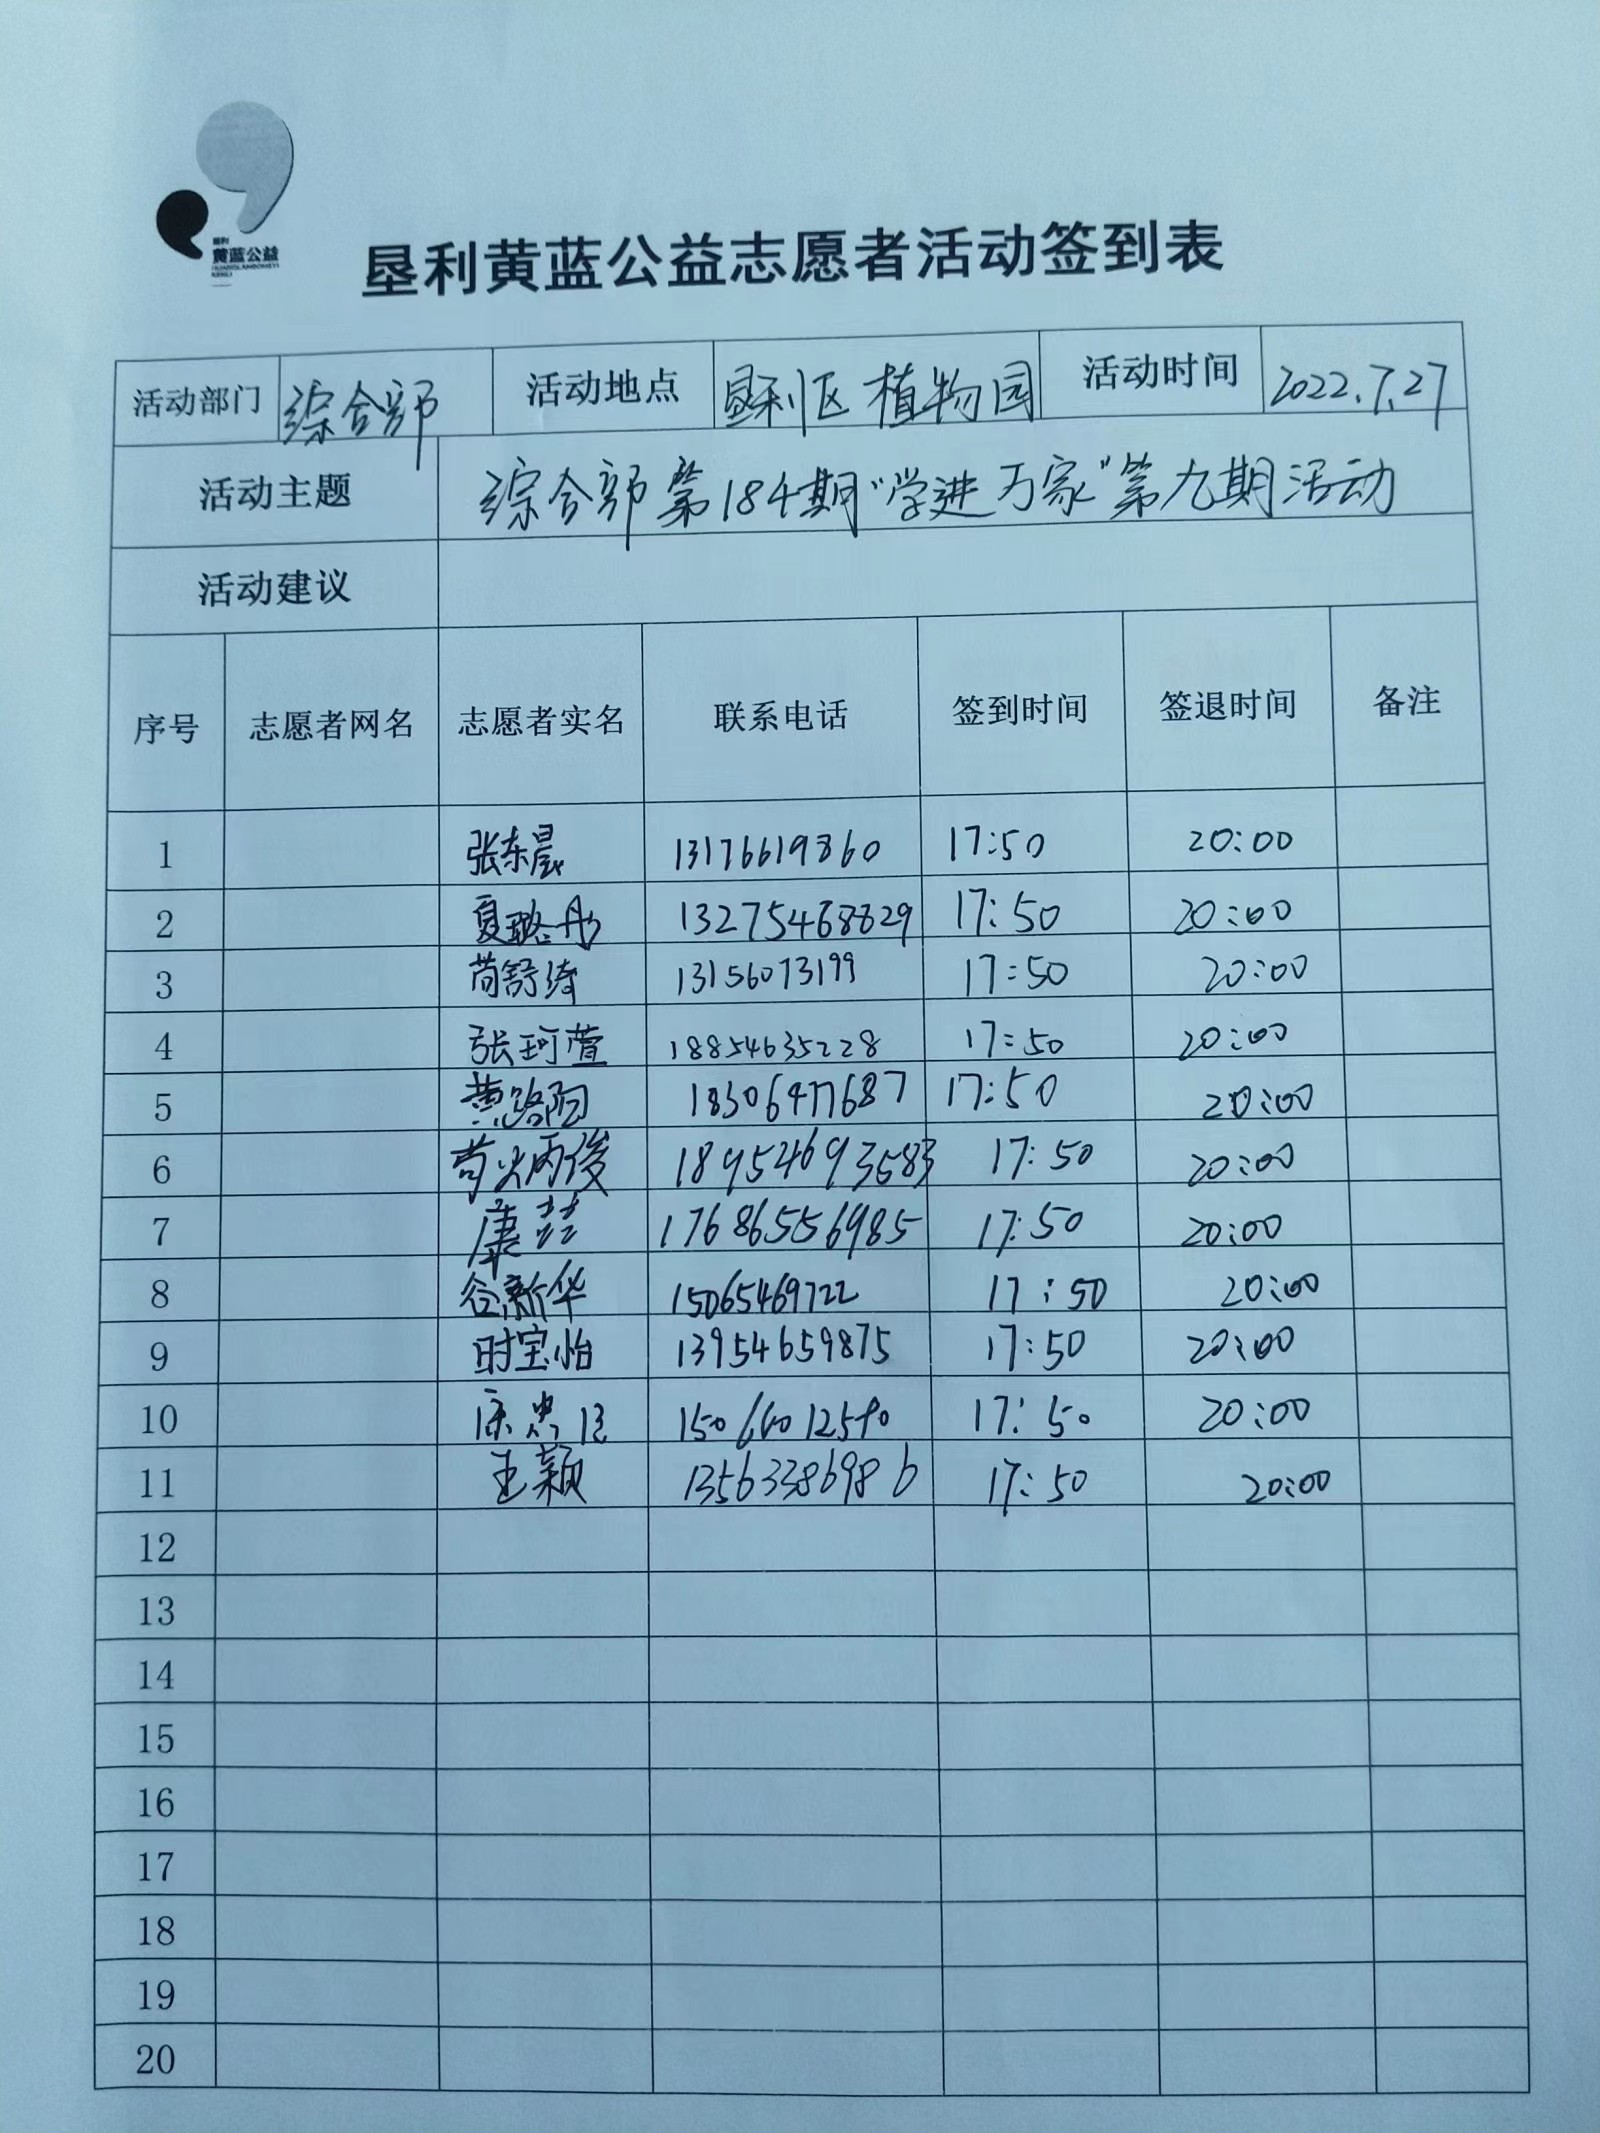 垦利
黄蓝公益
HUANGLANGONGYI
KENLI
垦利黄蓝公益志愿者活动签到表
活动部门 综合部 活动地点 垦利区植物园 活动时间 2022.7.27
活动主题 综合部第184期“学进万家”第九期活动
活动建议
序号 志愿者网名 志愿者实名 联系电话 签到时间 签退时间 备注
1 张东晨 13176619860 17:50 20:00
2 夏璐彤 13275468829 17:50 20:00
3 苘舒绮 13156073199 17:50 20:00
4 张珂萱 18854635228 17:50 20:00
5 黄路阳 18306477687 17:50 20:00
6 18954693583 17:50 20:00
7 康喆 17686556985 17:50 20:00
8 谷新华 15065469722 17:50 20:00
9 时宝怡 13954659875 17:50 20:00
10 17:50 20:00
11 王颖 13563386986 17:50 20:00
12
13
14
15
16
17
18
19
20